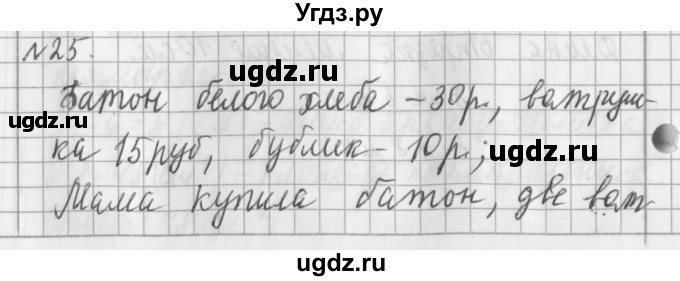 Угдз.ру
№25.
ugdz.ru
Батон белого хлеба - 30 р., ватруш-
ugdz.ru
ка 15 руб, бублик - 10 р.;
ugdz.ru
Мама купила батон, две ват
ugdz.ru
ugdz.ru